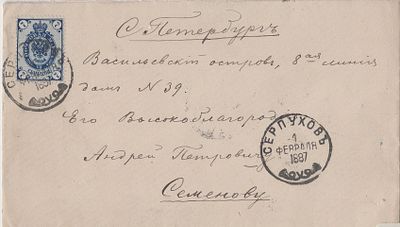 С Петербургъ
Васильевскі островъ, 8ая линія
домъ N 39.
Его Высокоблагород
Андрей Петрович
Семенову
7 7
СЕР
1887
СЕРПУХОВЪ
1
ФЕВРАЛЯ
1887